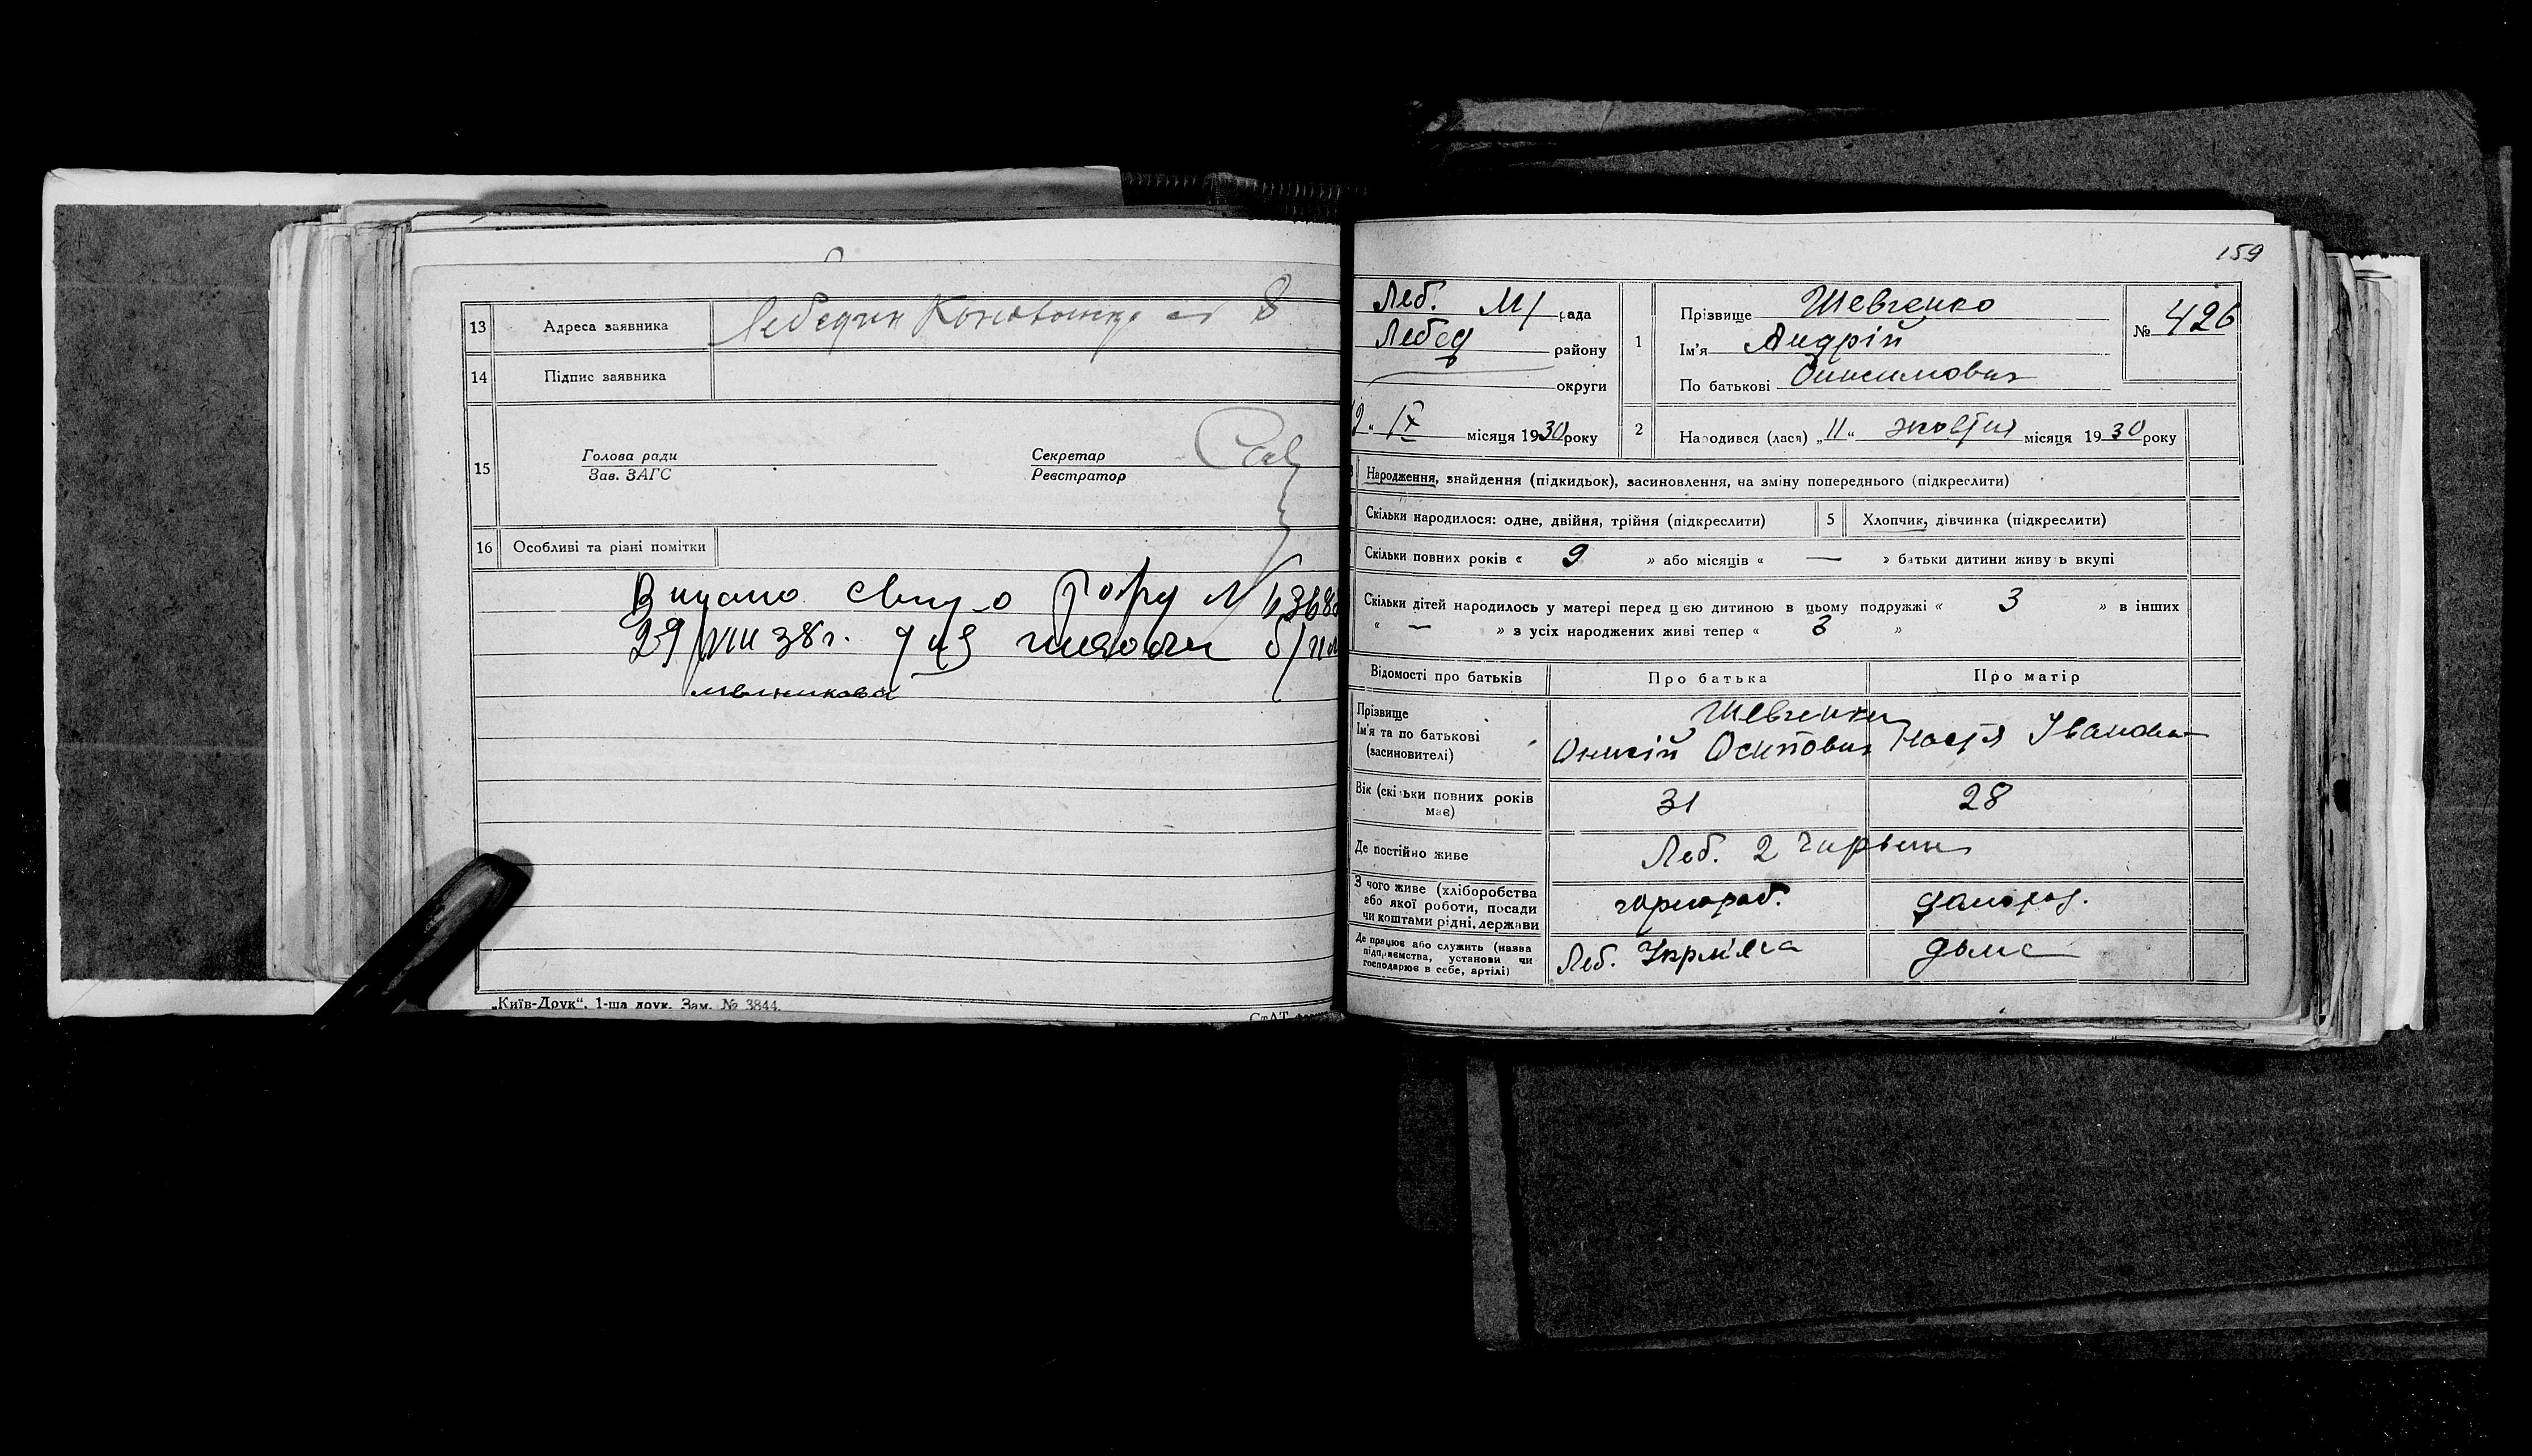 13 Адреса заявника Лебедин 8
14 Підпис заявника
15 Голова ради Секретар
Зав. ЗАГС Реєстратор
16 Особливі та різні помітки
Видано
29/VIII 38 г. для школи
„Київ-Друк“. 1-ша друк. Зам. № 3844.
159
Леб. М/ рада
Лебед району
округи
IX місяця 1930 року
1 Прізвище Шевченко
Ім'я Андрій
По батькові Онисимович
№ 426
2 Народився (лася) „11“ жовтня місяця 1930 року
Народження, знайдення (підкидьок), засиновлення, на зміну попереднього (підкреслити)
Скільки народилося: одне, двійня, трійня (підкреслити) 5 Хлопчик, дівчинка (підкреслити)
Скільки повних років « 9 » або місяців « — » батьки дитини живуть вкупі
Скільки дітей народилось у матері перед цією дитиною в цьому подружжі « 3 » в інших
« — » з усіх народжених живі тепер « 3 »
Відомості про батьків Про батька Про матір
Прізвище
Ім'я та по батькові
(засиновителі)
Шевченки
Онисій Осипович Настя Іванова
Вік (скільки повних років має) 31 28
Де постійно живе Леб. 2
З чого живе (хліборобства
або якої роботи, посади
чи коштами рідні, держави
чорнороб. домороб.
Де працює або служить (назва
підприємства, установи чи
господарює в себе, артілі)
Леб. Укрм'яса дома